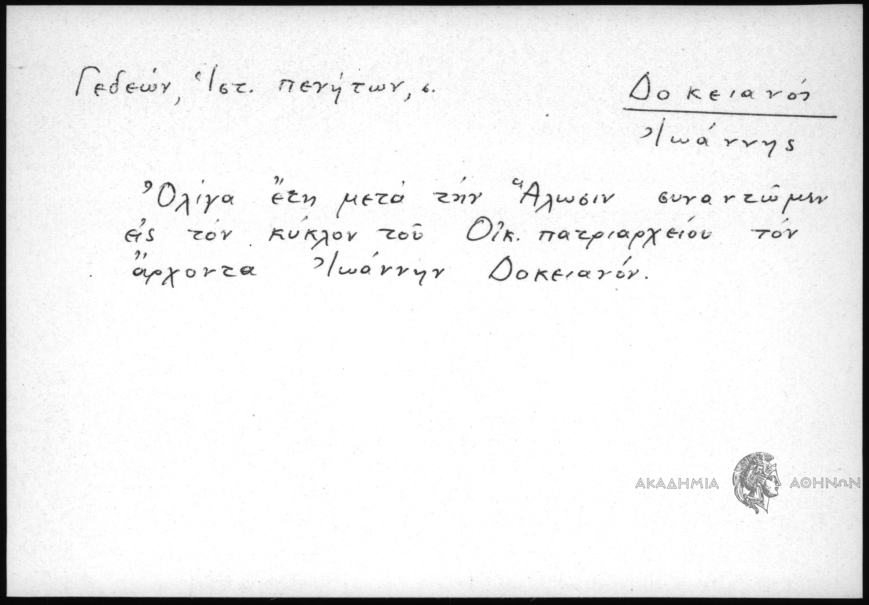 Γεδεών, Ἱστ. πενήτων, σ.
Δοκειανός
Ἰωάννης
Ὀλίγα ἔτη μετά τήν Ἅλωσιν συναντῶμεν
εἰς τόν κύκλον τοῦ Οἰκ. πατριαρχείου τόν
ἄρχοντα Ἰωάννην Δοκειανόν.
ΑΚΑΔΗΜΙΑ ΑΘΗΝΩΝ